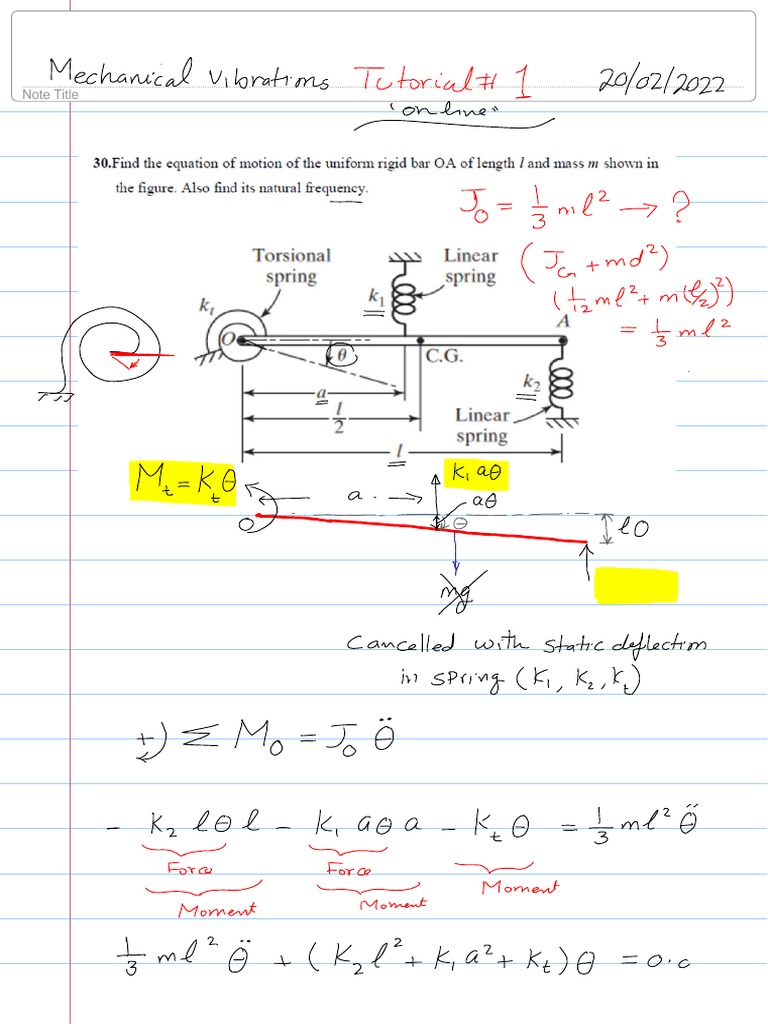 Mechanical Vibrations Tutorial# 1 20/02/2022
Note Title
"online"
30.Find the equation of motion of the uniform rigid bar OA of length l and mass m shown in
the figure. Also find its natural frequency.
J₀ = 1/3 ml² → ?
(J_G + md²)
(1/12 ml² + m(l/2)²)
= 1/3 ml²
Torsional
spring
Linear
spring
k₁
kₜ
A
O
θ
C.G.
k₂
a
l/2
Linear
spring
l
Mₜ = Kₜθ
K₁ aθ
a
aθ
O
θ
lθ
mg
Cancelled with static deflection
in spring (K₁, K₂, Kₜ)
+) Σ M₀ = J₀ θ̈
- K₂ lθ l - K₁ aθ a - Kₜ θ = 1/3 ml² θ̈
Force Force
Moment Moment Moment
1/3 ml² θ̈ + (K₂l² + K₁a² + Kₜ)θ = 0.0